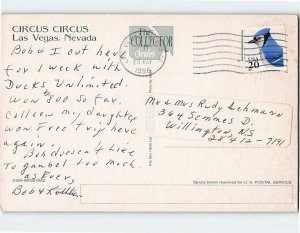 CIRCUS CIRCUS
Las Vegas, Nevada
THE
COLLECTOR
Series
USA
20
Bob & I out here
for 1 week with
Ducks Unlimited.
Won $800 so far.
Colleen my daughter
won Free trip here
again.
Bob doesn't like
To gambol too much.
as Ever,
Bob &
Mr & Mrs Rudy Lehmann
364 Semmes D.
Willington, NS
28412-7141
Space below reserved for U.S. POSTAL SERVICE